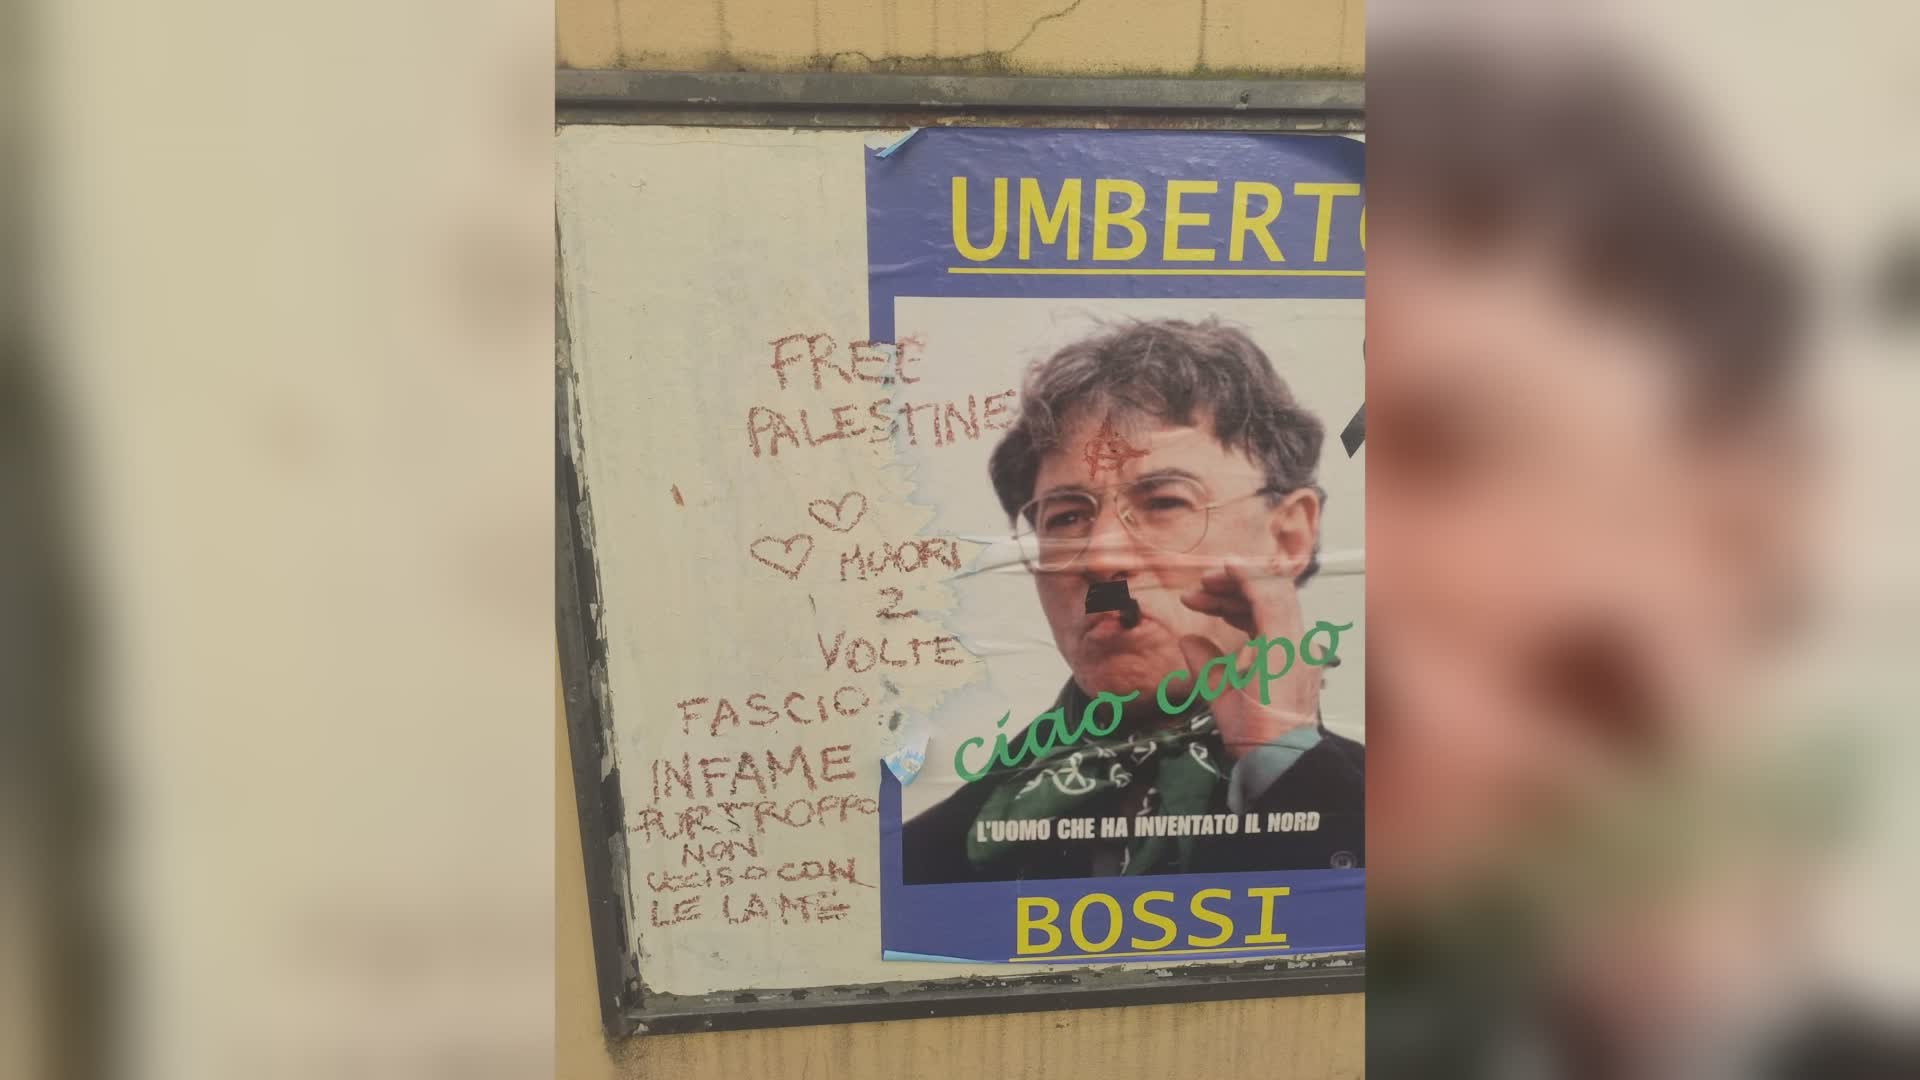 UMBERTO
FREE
PALESTINE
A
MUORI
2
VOLTE
FASCIO
INFAME
PURTROPPO
NON
UCCISO CON
LE LAME
ciao capo
L'UOMO CHE HA INVENTATO IL NORD
BOSSI